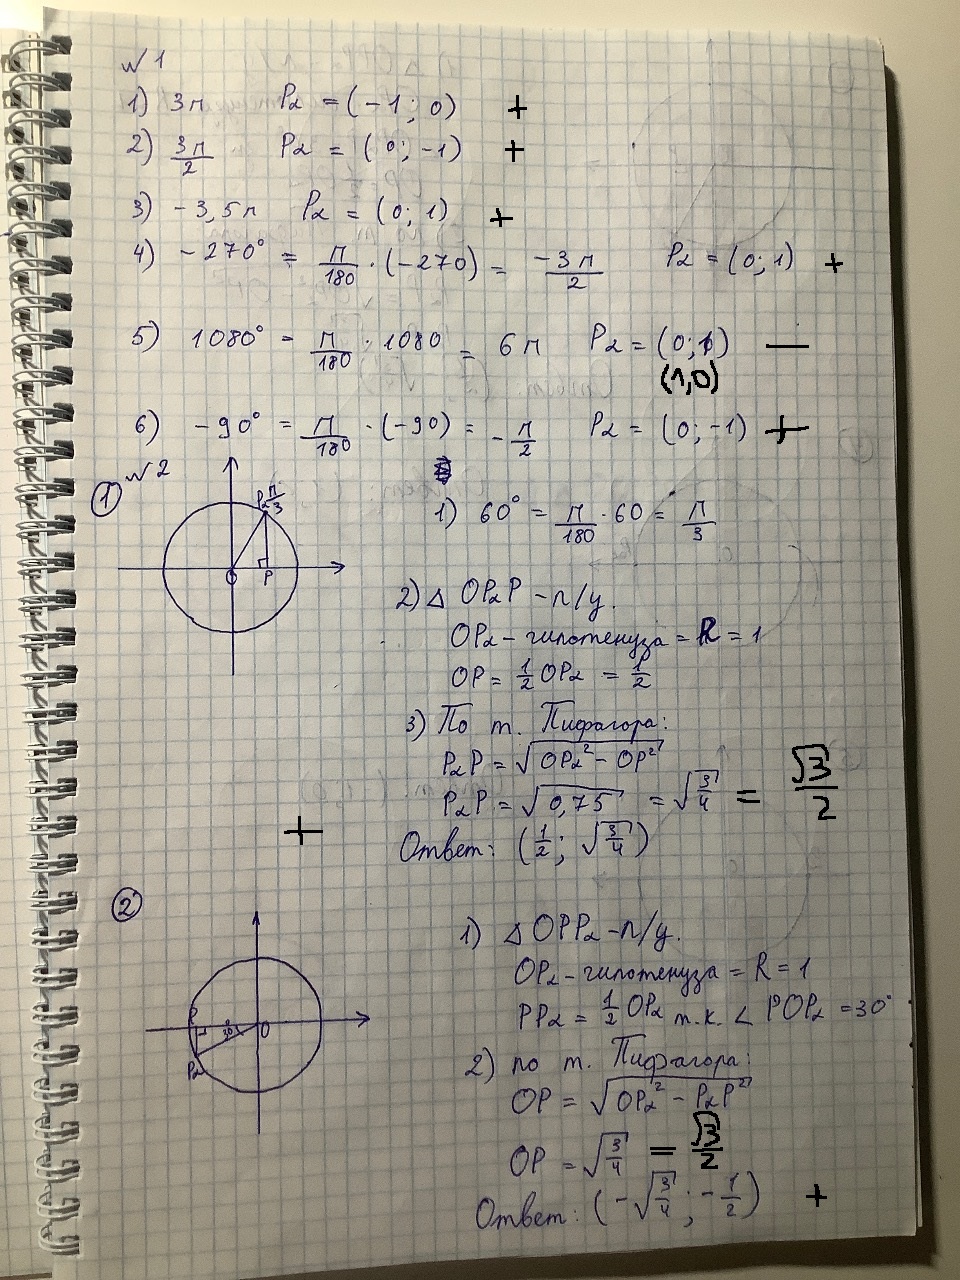 №1
1) 3π Pα = (-1; 0) +
2) 3π/2 Pα = (0; -1) +
3) -3,5π Pα = (0; 1) +
4) -270° = π/180 · (-270) = -3π/2 Pα = (0; 1) +
5) 1080° = π/180 · 1080 = 6π Pα = (0; 1) —
(1,0)
6) -90° = π/180 · (-90) = -π/2 Pα = (0; -1) +
№2
①
Pα π/3
O P
1) 60° = π/180 · 60 = π/3
2) △ OPαP - п/у.
OPα - гипотенуза = R = 1
OP = 1/2 OPα = 1/2
3) По т. Пифагора:
PαP = √(OPα² - OP²)
PαP = √0,75 = √(3/4) = √3/2
+
Ответ: (1/2; √(3/4))
②
P 30° O
Pα
1) △ OPPα - п/у.
OPα - гипотенуза = R = 1
PPα = 1/2 OPα т.к. ∠ POPα = 30°
2) по т. Пифагора:
OP = √(OPα² - PαP²)
OP = √(3/4) = √3/2
Ответ: (-√(3/4); -1/2) +